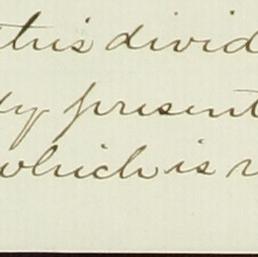 this divid
ly present
which is